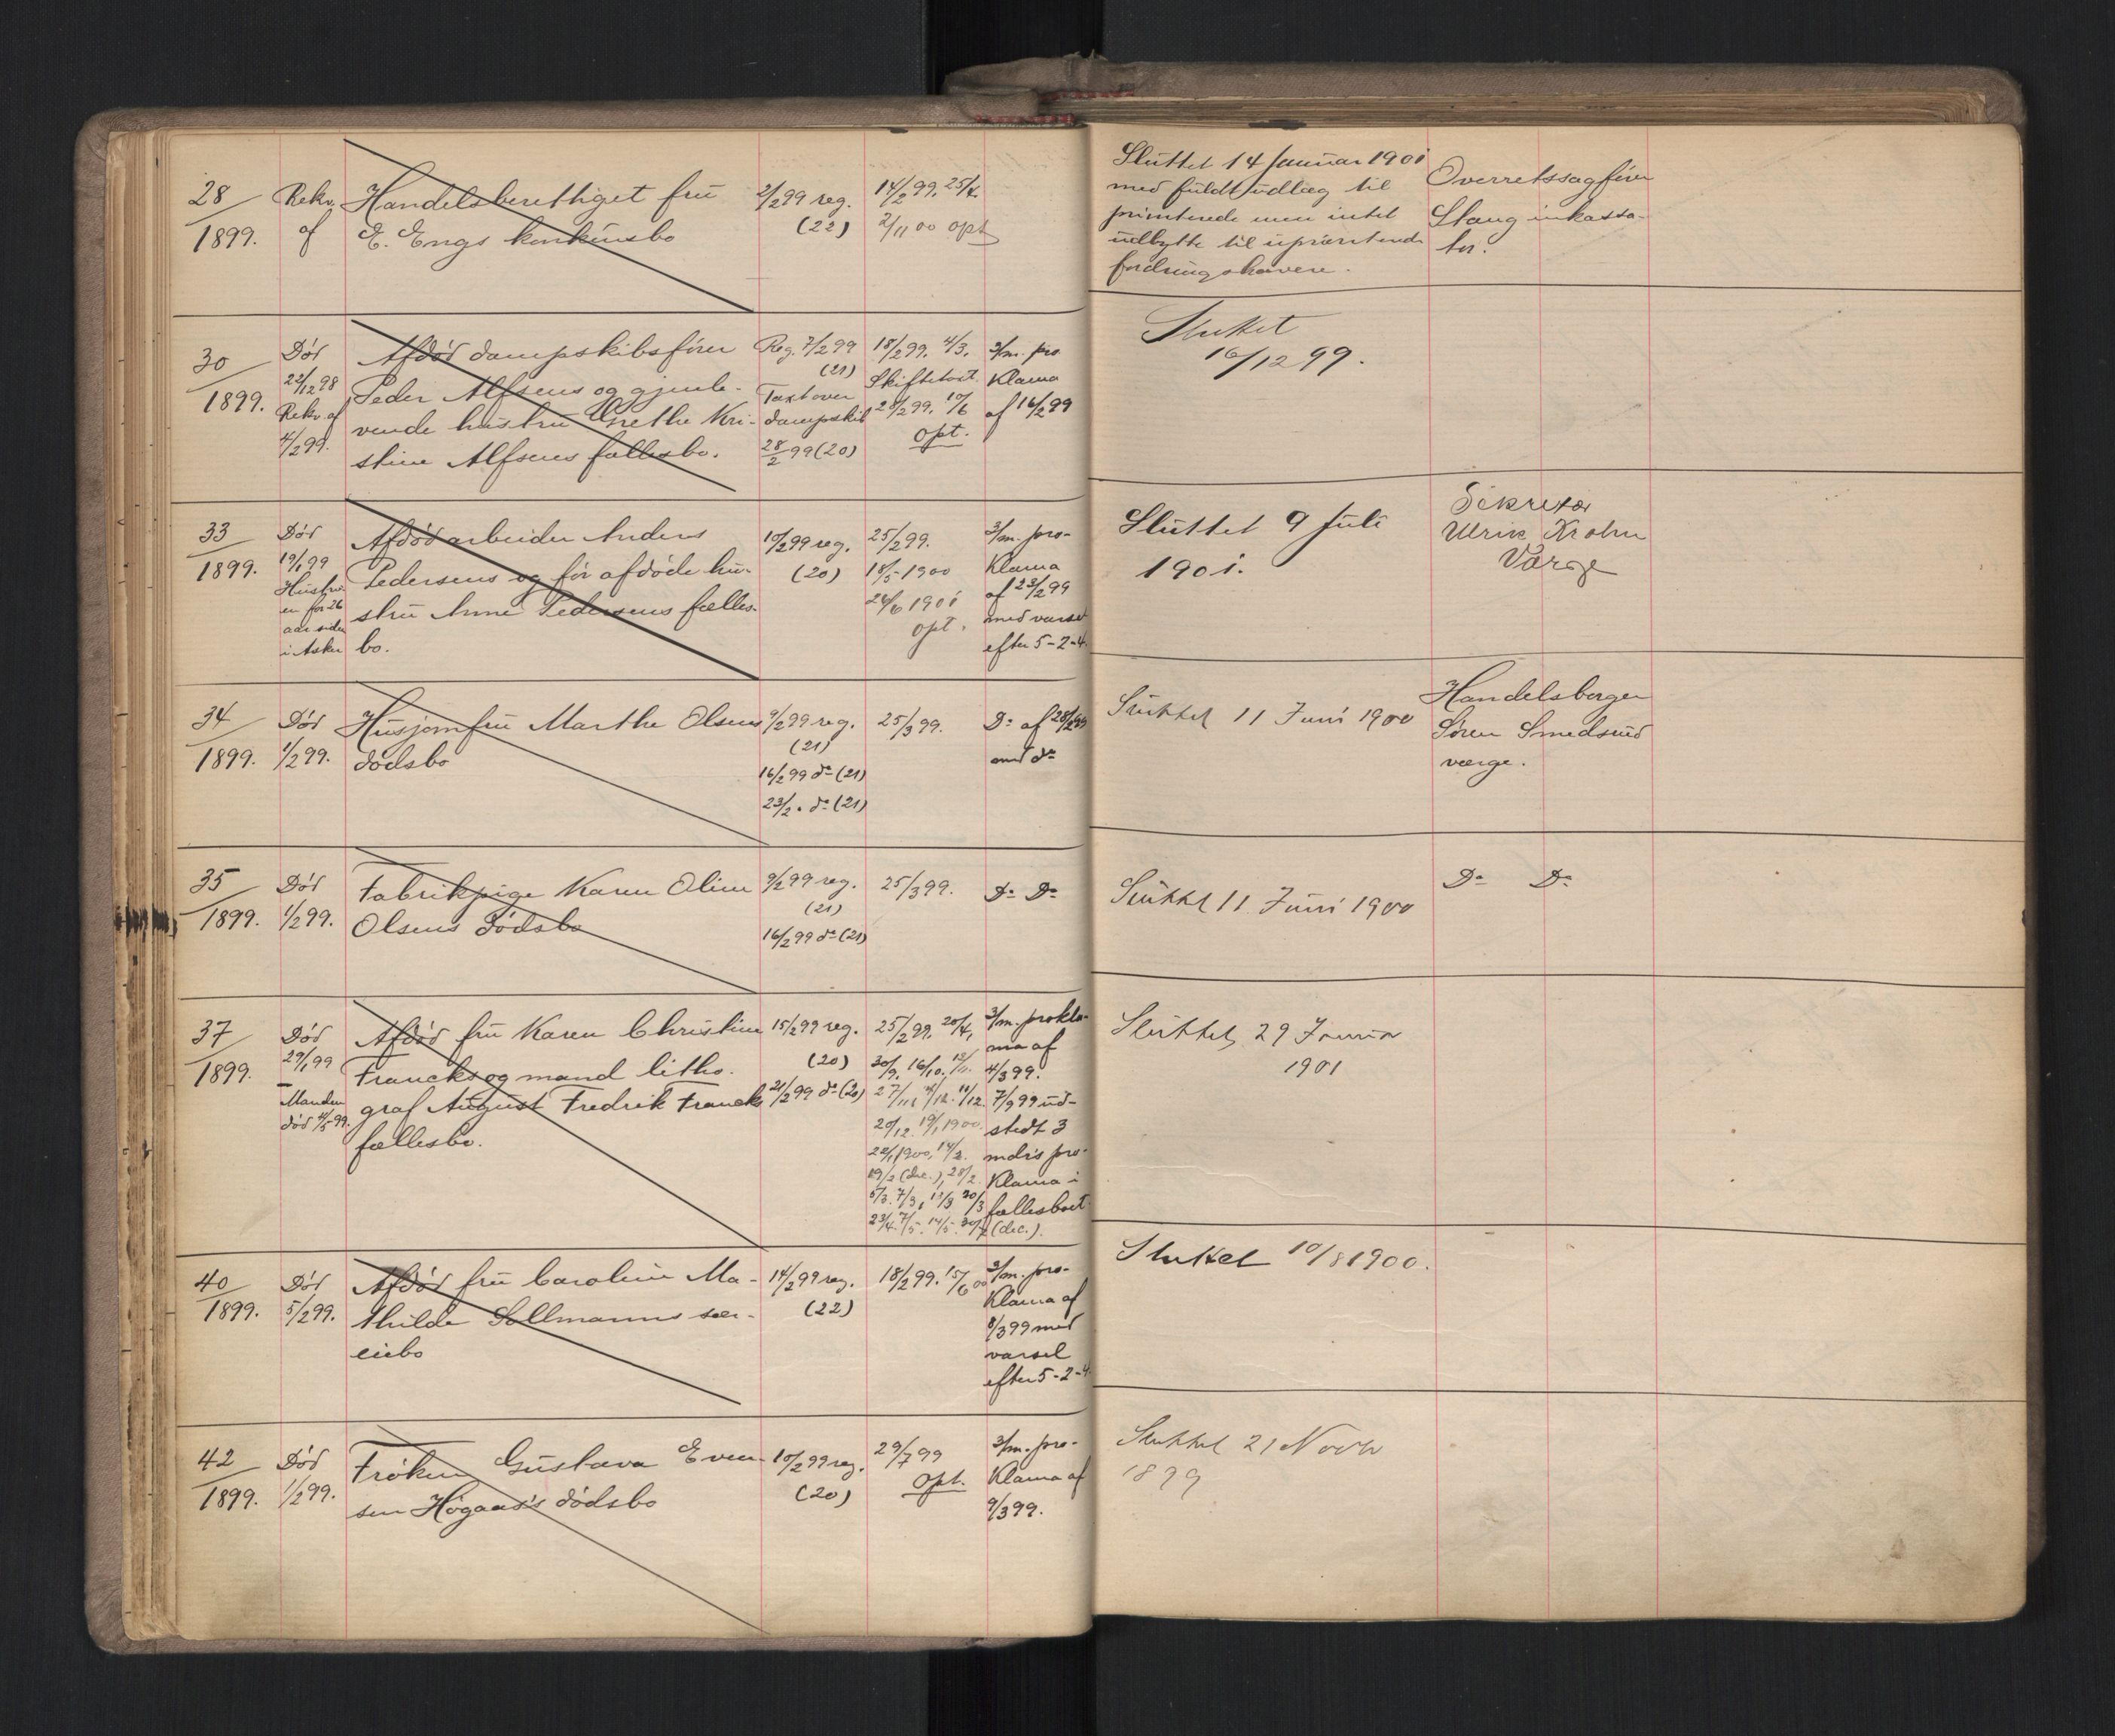 28
1899.
Rekv.
af
Handelsberettiget frü
E. Engs konkürsbo
2/2 99 reg.
(22)
14/2 99, 25/4.
2/11 00 opt
Slüttet 14 Januar 1901
med füldt üdlæg til
udbytte til
fordringshavere.
Overretssagfører
Stang inkassa-
tor.
30
1899.
Død
22/12 98
Rekv. af
4/2 99.
Afdød dampskibsfører
Peder Alfsens og gjenle-
vende hüstrü Grethe Kri-
stine Alfsens fællesbo.
Reg. 7/2 99
(21)
Taxt over
dampskib
28/2 99 (20)
18/2 99. 4/3.
Skiftetaxt
28/2 99. 10/6
opt.
3/m. pro
klama
af 16/2 99
Sluttet
16/12 99.
33
1899.
Død
19/1 99
Hüstrü-
en for 26
aar siden
i Asker
Afdød arbeider Anders
Pedersens og før afdøde hü-
strü Anne Pedersens fælles-
bo.
10/2 99 reg.
(20)
25/2 99.
18/5 1900
26/6 1901
opt.
3/m. pro-
klama
af 23/2 99
med varsel
efter 5-2-4.
Slüttet 9 Juli
1901.
Sekretær
Ulrik Krohn
Værge
34
1899.
Død
1/2 99.
Hüsjomfrü Marthe Olsens
dødsbo
9/2 99 reg.
(21)
16/2 99 do (21)
23/2 " do (21)
25/3 99.
Do af 28/2 99
med do
Slüttet 11 Juni 1900
Handelsborger
Søren Smedsrüd
værge.
35
1899.
Død
1/2 99.
Fabrikpige Karen Oline
Olsens Dødsbo
9/2 99 reg.
(21)
16/2 99 do (21)
25/3 99.
Do Do
Slüttet 11 Juni 1900
Do Do
37
1899.
Død
29/1 99
Manden
død 4/5 99.
Afdød frü Karen Christine
Francks og mand litho-
graf Aügüst Fredrik Francks
fællesbo.
15/2 99 reg.
(20)
21/2 99 do (20)
25/2 99, 20/4,
30/9, 16/10. 13/11.
27/11, 4/12. 11/12.
20/12. 19/1 1900.
22/1 1900, 14/2.
19/2 (dec.), 28/2.
5/3. 7/3, 13/3 20/3
23/4. 7/5. 14/5. 30/7 (dec.).
3/m. prokla-
ma af
4/3 99.
7/9 99 üd-
stedt 3
mdrs pro-
klama i
fællesboet.
Slüttet 29 Januar
1901
40
1899.
Død
5/2 99.
Afdød frü Caroline Ma-
thilde Sollmanns sær-
eiebo
14/2 99 reg.
(22)
18/2 99. 15/6 00
3/m. pro-
klama af
8/3 99 med
varsel
efter 5-2-4.
Sluttet 10/8 1900.
42
1899.
Død
1/2 99.
Frøken Güstava Even-
sen Høgaas's dødsbo
10/2 99 reg.
(20)
29/7 99
opt.
3/m. pro-
klama af
9/3 99.
Sluttet 21 Novbr
1899